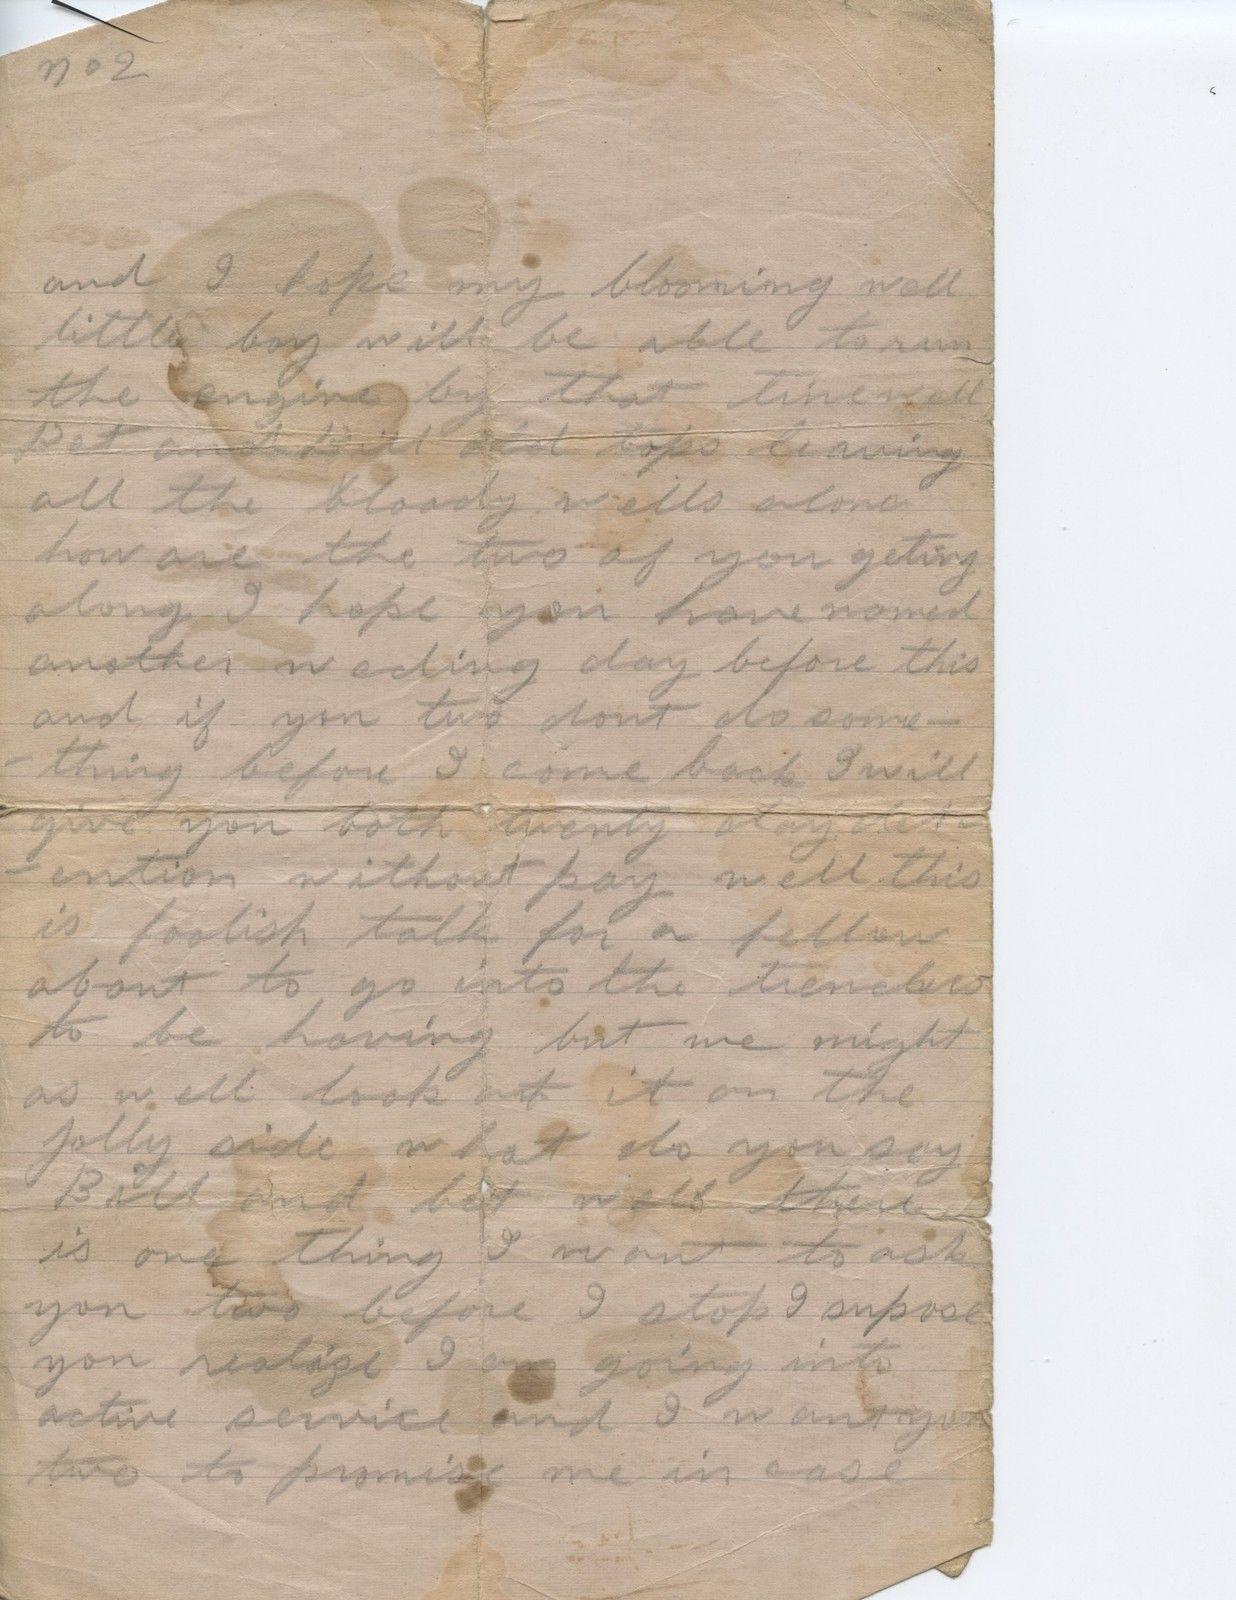 no 2
and I hope my blooming well
little boy will be able to run
the engine by that time well
Bet and Bill old tops leaving
all the bloody wells alone
how are the two of you geting
along I hope you have named
another weding day before this
and if you two dont do some-
-thing before I come back I will
give you both twenty day det
-ention without pay well this
is foolish talk for a fellow
about to go into the trenches
to be having but we might
as well look at it on the
jolly side what do you say
Bill and bet well there
is one thing I want to ask
you two before I stop I supose
you realize I am going into
active service and I want you
two to promise me in case